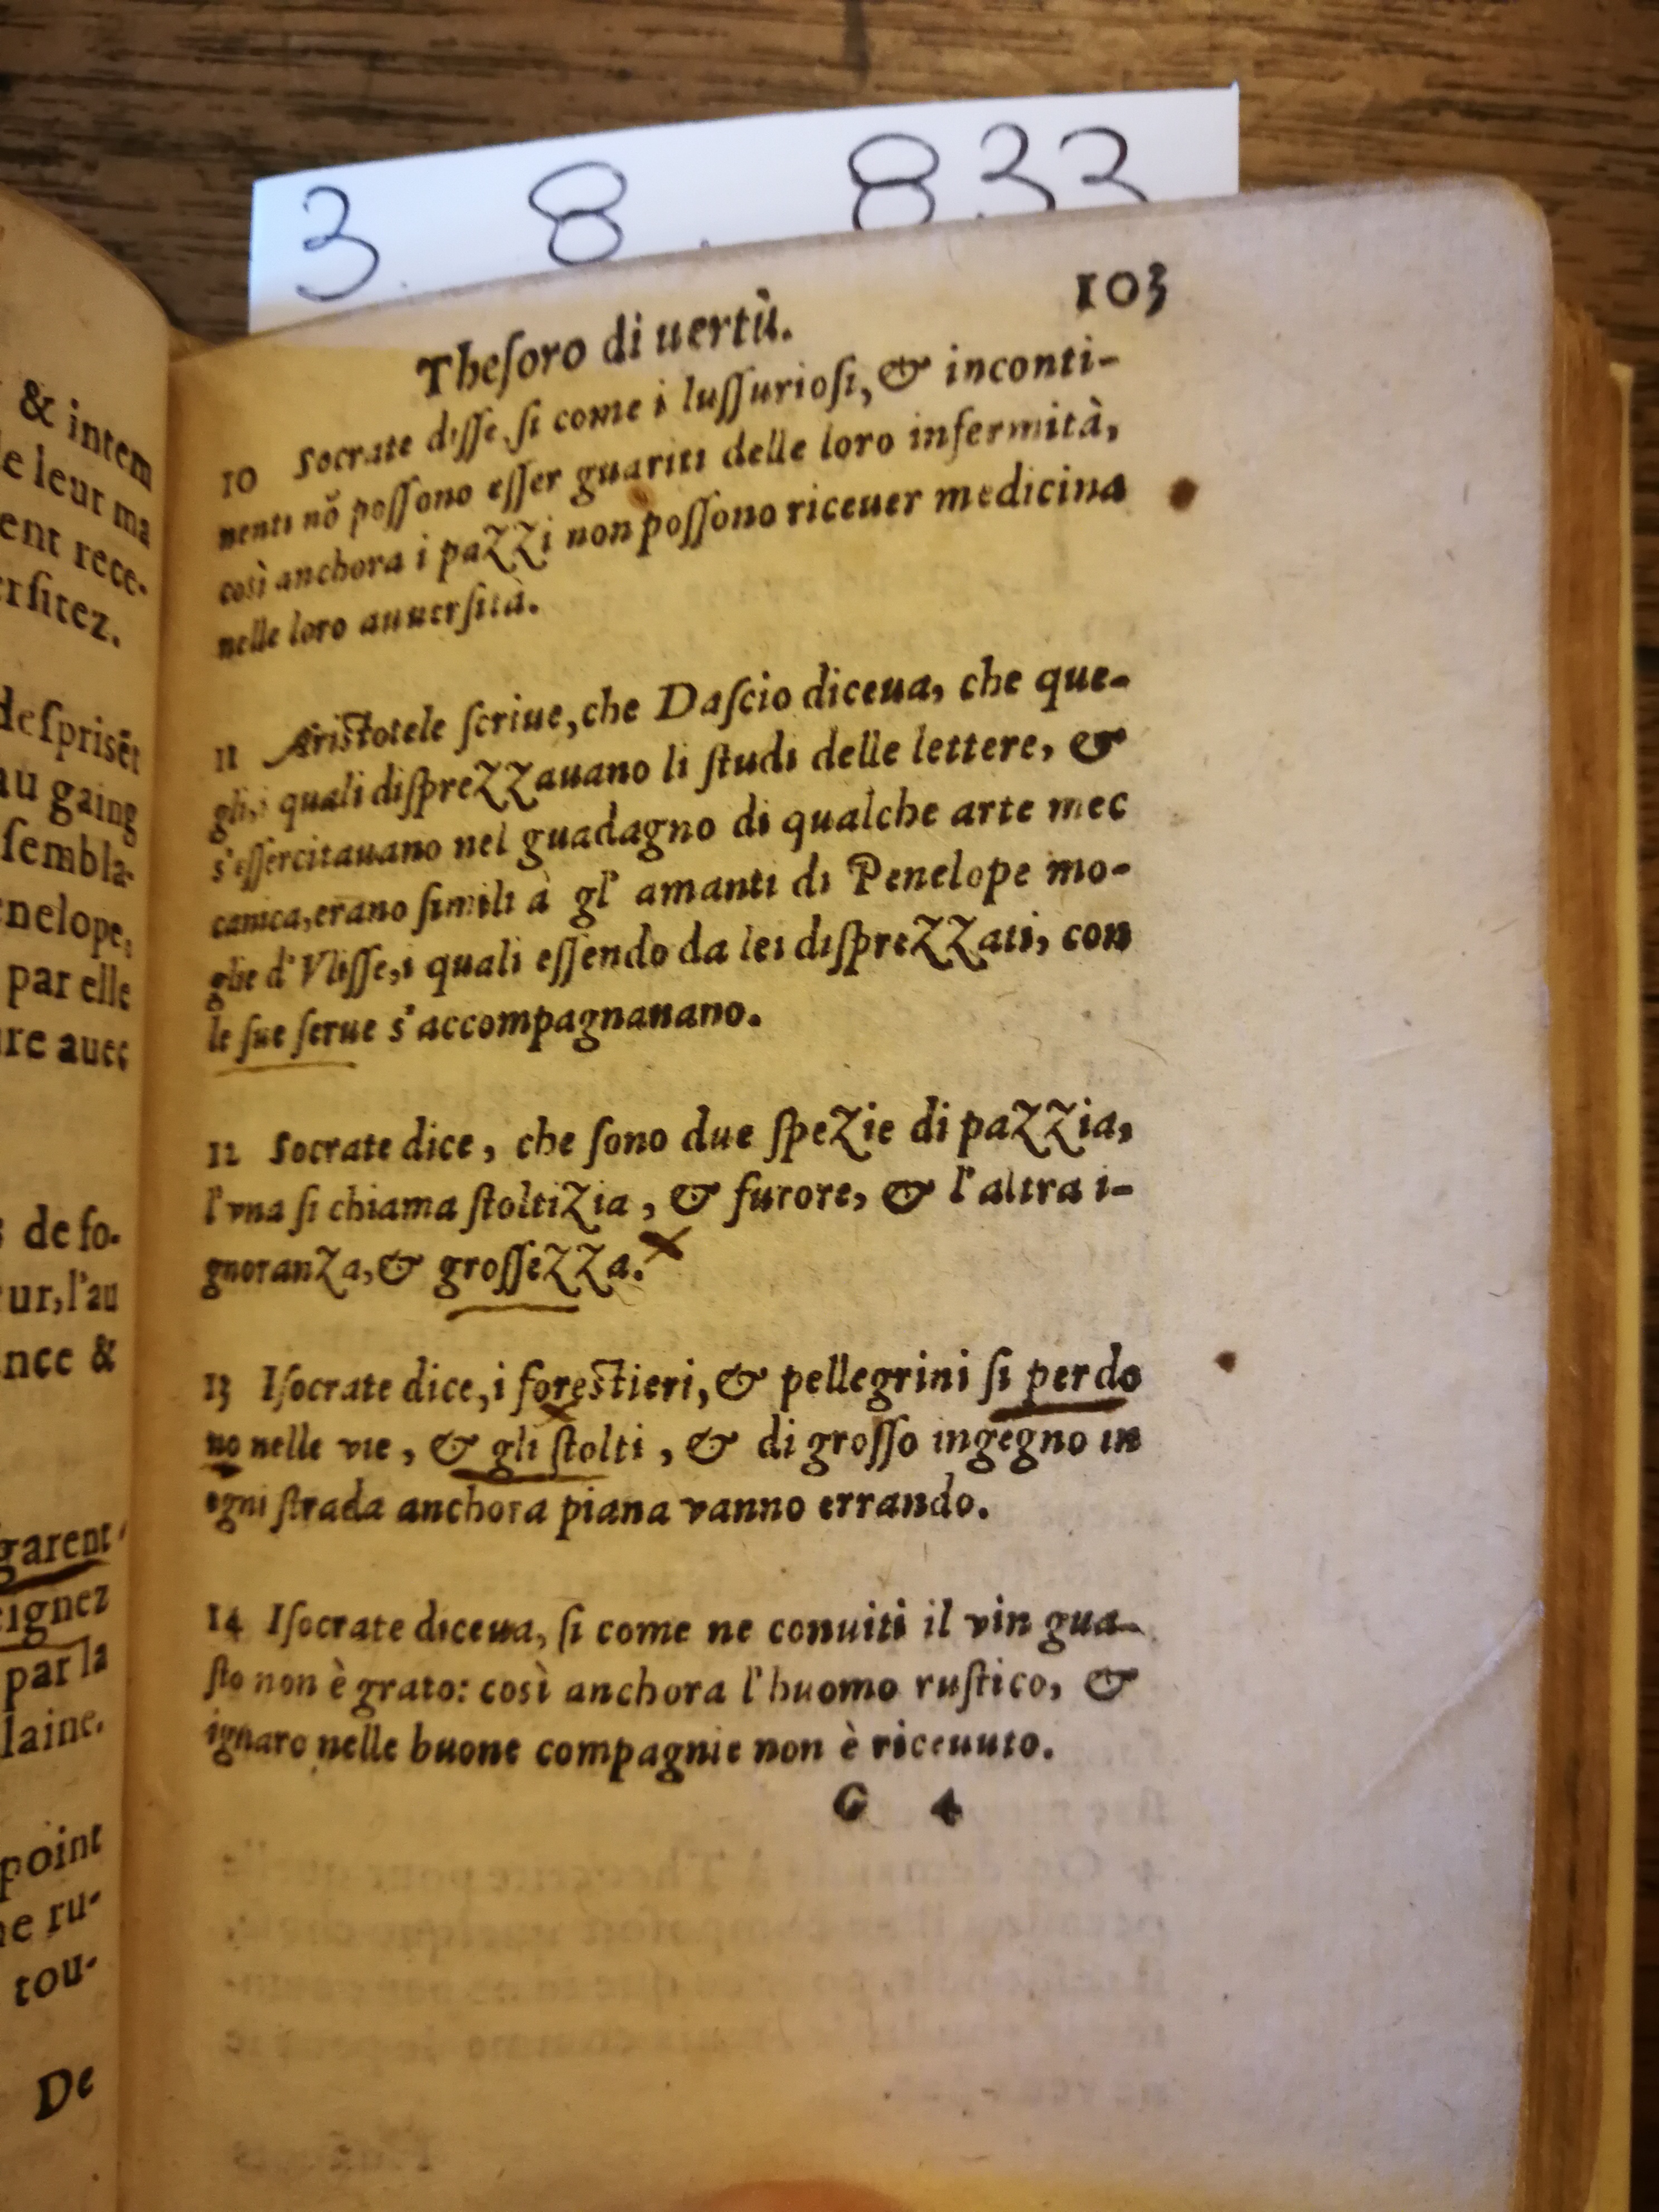 3. 8. 833
& intem
e leur ma
ent rece-
rſitez.
deſpriſēt
au gaing
ſembla-
nelope,
par elle
re auec
de fo-
ur, l'au
nce &
garent
ignez
par la
laine.
point
e ru-
tou-
De
Theſoro di uertù.
103
10 Socrate diſſe, ſi come i luſſurioſi, & inconti-
nenti nō poſſono eſſer guariti delle loro infermità,
così anchora i pazzi non poſſono riceuer medicina
nelle loro auuerſità.
11 Ariſtotele ſcriue, che Daſcio diceua, che que-
gli, i quali diſprezzauano li ſtudi delle lettere, &
s'eſſercitauano nel guadagno di qualche arte mec
canica, erano ſimili à gl' amanti di Penelope mo-
glie d'Vliſſe, i quali eſſendo da lei diſprezzati, con
le ſue ſerue s'accompagnauano.
12 Socrate dice, che ſono due ſpezie di pazzia,
l'vna ſi chiama ſtoltizia, & furore, & l'altra i-
gnoranza, & groſſezza.
13 Iſocrate dice, i foreſtieri, & pellegrini ſi perdo
no nelle vie, & gli ſtolti, & di groſſo ingegno in
ogni ſtrada anchora piana vanno errando.
14 Iſocrate diceua, ſi come ne conuiti il vin gua-
ſto non è grato: così anchora l'huomo ruſtico, &
ignaro nelle buone compagnie non è riceuuto.
G 4